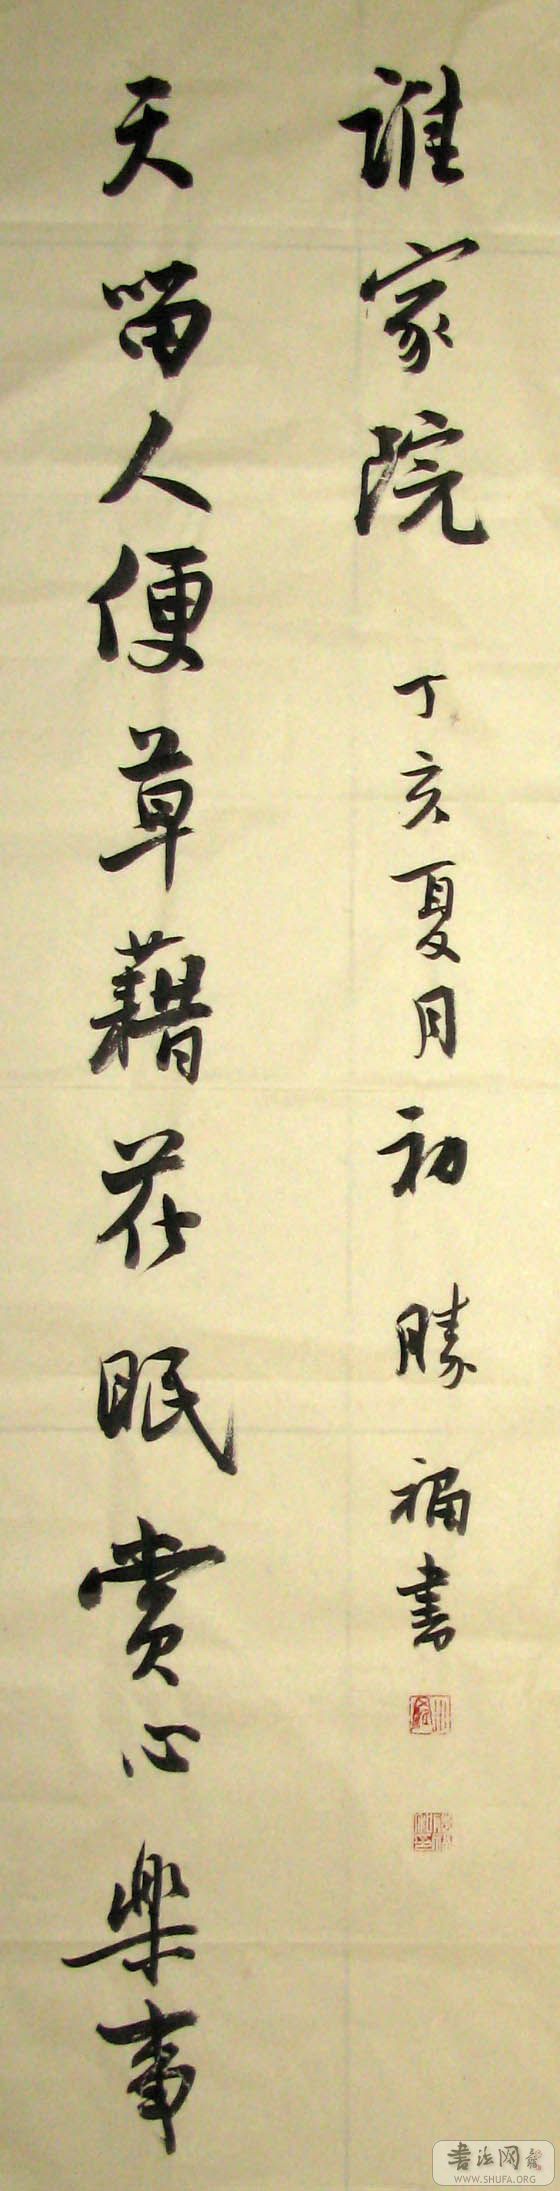 天留人便草藉花眠賞心樂事
誰家院 丁亥夏月初 勝福書
书法网
WWW.SHUFA.ORG